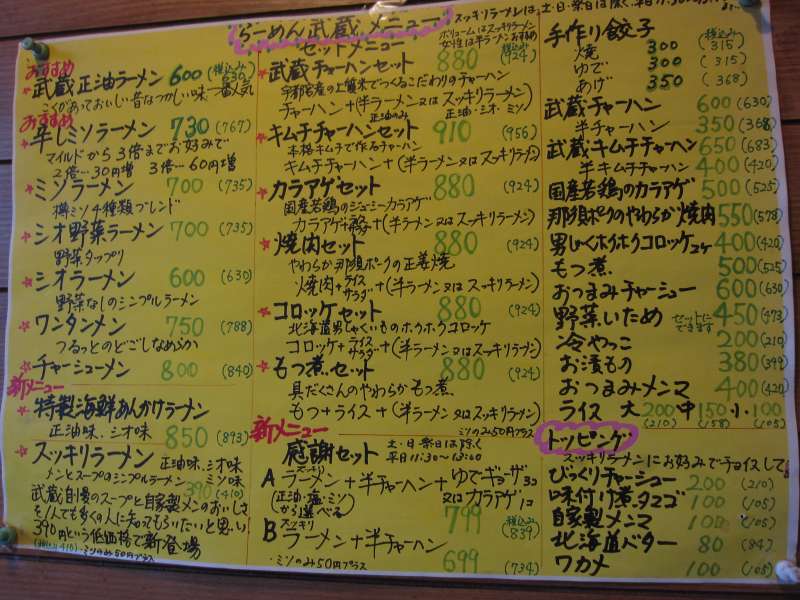 らーめん武蔵メニュー
おすすめ
武蔵正油ラーメン 600 (税込み630)
こくがあっておいしい昔なつかしい味一番人気
おすすめ
辛しミソラーメン 730 (767)
マイルドから3倍までお好みで
2倍…30円増 3倍…60円増
ミソラーメン 700 (735)
樽ミソ4種類ブレンド
シオ野菜ラーメン 700 (735)
野菜タップリ
シオラーメン 600 (630)
野菜なしのシンプルラーメン
ワンタンメン 750 (788)
つるっとのどごしなめらか
チャーシューメン 800 (840)
新メニュー
特製海鮮あんかけラーメン
正油味、シオ味 850 (893)
スッキリラーメン 正油味、シオ味
メンとスープのシンプルラーメン ミソ味
390 (410)
武蔵自慢のスープと自家製メンのおいしさ
を1人でも多くの人に知ってもらいたいと思い
390円という低価格で新登場
(税込み410)・ミソのみ50円プラス
スッキリラーメンは、土・日・祭日は除く、平日11:30〜
セットメニュー
ボリュームはスッキリラーメン
女性は半ラーメンおすすめ
武蔵チャーハンセット 880 (税込み924)
宇都宮産の上質米でつくるこだわりのチャーハン
チャーハン+(半ラーメン又はスッキリラーメン)
正油のみ 正油・シオ・ミソ
キムチチャーハンセット 910 (956)
本格キムチで作るチャーハン
キムチチャーハン+(半ラーメン又はスッキリラーメン)
カラアゲセット 880 (924)
国産若鶏のジューシーカラアゲ
カラアゲ+ライスサラダ+(半ラーメン又はスッキリラーメン)
焼肉セット 880 (924)
やわらか那須ポークの正姜焼
焼肉+ライスサラダ+(半ラーメン又はスッキリラーメン)
コロッケセット 880 (924)
北海道男しゃくいものホクホクコロッケ
コロッケ+ライスサラダ+(半ラーメン又はスッキリラーメン)
もつ煮セット 880 (924)
具だくさんのやわらかもつ煮
もつ+ライス+(半ラーメン又はスッキリラーメン)
ミソのみ50円プラス
新メニュー
感謝セット 土・日・祭日は除く
平日11:30〜
A スッキリラーメン+半チャーハン+ゆでギョーザ3コ
(正油・塩・ミソから選べる) 又はカラアゲ1コ
799 (税込み839)
B スッキリラーメン+半チャーハン
・ミソのみ50円プラス 699 (734)
手作り餃子 (税込み)
焼 300 (315)
ゆで 300 (315)
あげ 350 (368)
武蔵チャーハン 600 (630)
半チャーハン 350 (368)
武蔵キムチチャーハン 650 (683)
半キムチチャーハン 400 (420)
国産若鶏のカラアゲ 500 (525)
那須ポークのやわらか焼肉 550 (578)
男しゃくホクホクコロッケ2ケ 400 (420)
もつ煮 500 (525)
おつまみチャーシュー 600 (630)
野菜いため セットにできます 450 (473)
冷やっこ 200 (210)
お漬もの 380 (399)
おつまみメンマ 400 (420)
ライス 大200 中150 小100
(210) (158) (105)
トッピング
スッキリラーメンにお好みでチョイスして
びっくりチャーシュー 200 (210)
味付け煮タマゴ 100 (105)
自家製メンマ 100 (105)
北海道バター 80 (84)
ワカメ 100 (105)